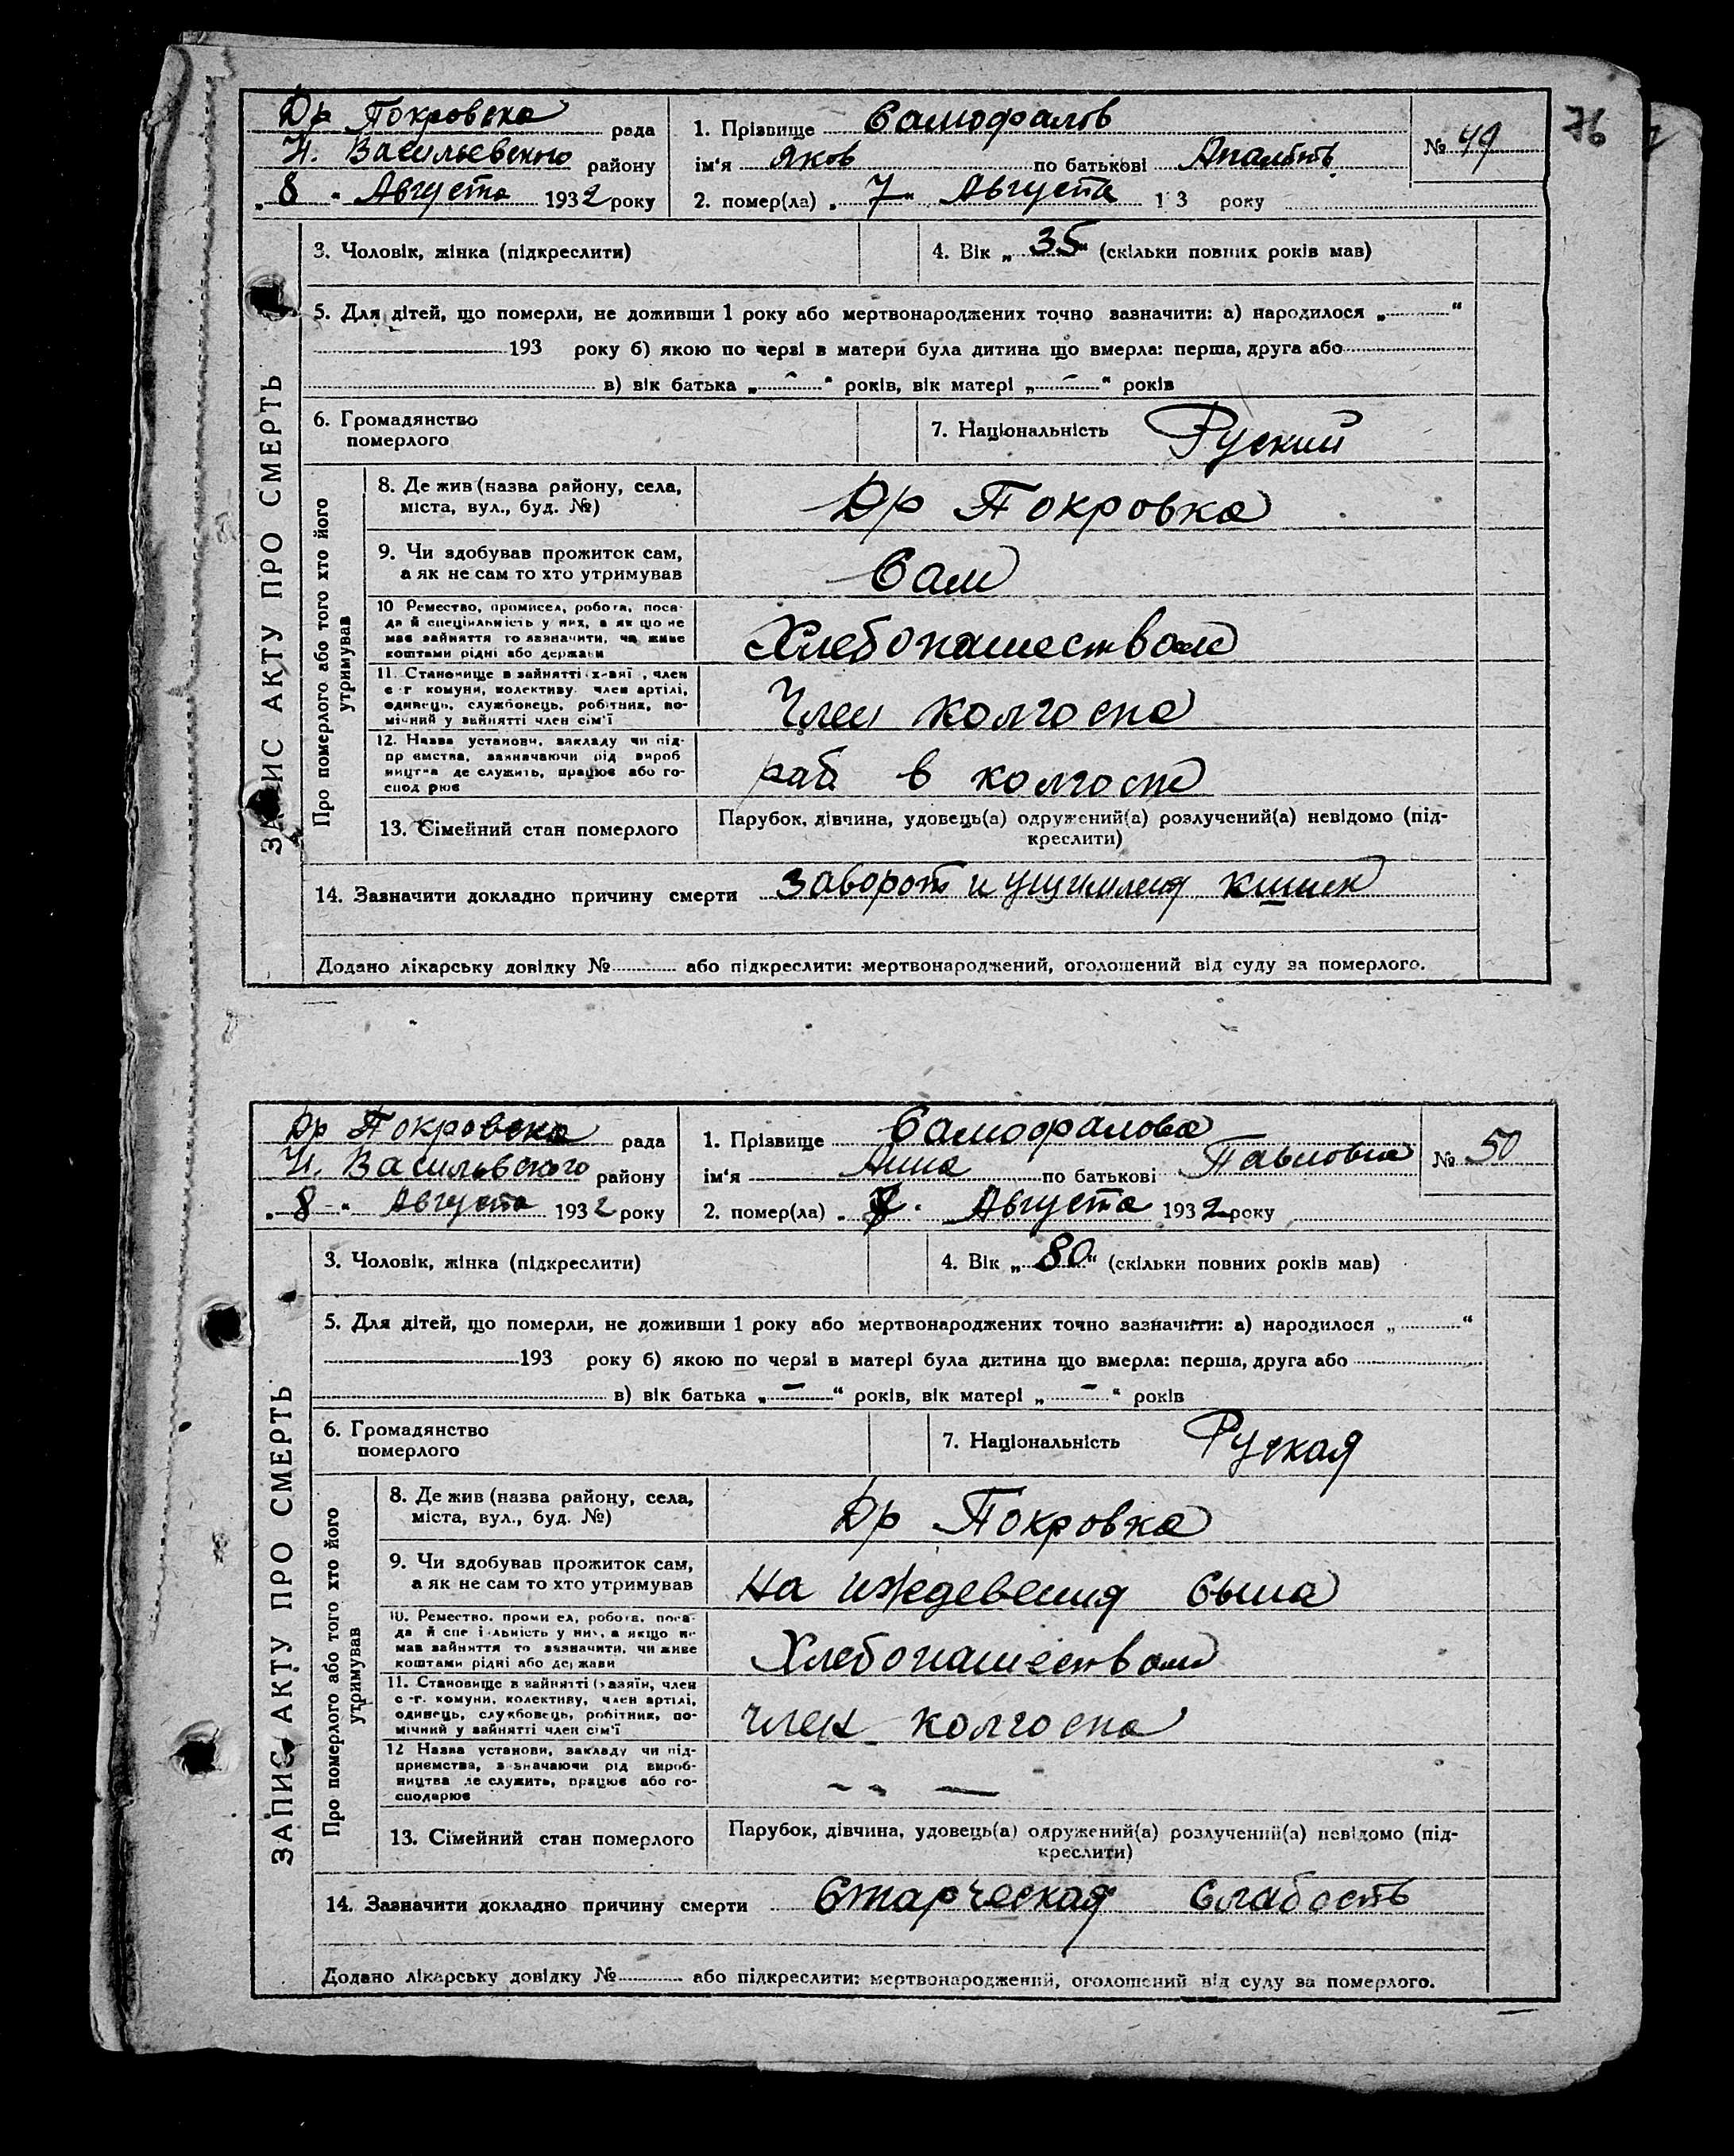 76
Др Покровска рада
Н. Васильевского району
„ 8 “ Августа 1932 року
1. Прізвище Самофалов
ім'я Яков по батькові
2. помер(ла) „ 7 “ Августа 1 3 року
№ 49
ЗАПИС АКТУ ПРО СМЕРТЬ
3. Чоловік, жінка (підкреслити)
4. Вік „ 35 “ (скільки повних років мав)
5. Для дітей, що померли, не доживши 1 року або мертвонароджених точно зазначити: а) народилося „ “
193 року б) якою по черзі в матери була дитина що вмерла: перша, друга або
в) вік батька „ - “ років, вік матері „ - “ років
6. Громадянство
померлого
7. Національність Руский
Про померлого або того хто його
утримував
8. Де жив (назва району, села,
міста, вул., буд. №)
Др Покровка
9. Чи здобував прожиток сам,
а як не сам то хто утримував
Сам
10 Ремество, промисел, робота, поса-
да й спеціяльність у них, а як що не
має зайняття то зазначити, чи живе
коштами рідні або держави
Хлебопашеством
11. Становище в зайнятті х-зяї , член
с-г комуни, колективу член артілі,
одинець, службовець, робітник, по-
мічний у зайнятті член сім'ї
Член колгоспа
12. Назва установи, закладу чи під-
пр ємства, зазначаючи рід вироб
ництва де служить, працює або го-
спод рює
раб в колгоспе
13. Сімейний стан померлого
Парубок, дівчина, удовець(а) одружений(а) розлучений(а) невідомо (під-
креслити)
14. Зазначити докладно причину смерти заворот и ущимления кишек
Додано лікарську довідку № або підкреслити: мертвонароджений, оголошений від суду за померлого.
Др Покровска рада
Н. Василевского району
„ 8 “ Августа 1932 року
1. Прізвище Самофалова
ім'я Анна по батькові Павловна
2. помер(ла) „ 7 “ Августа 1932 року
№ 50
ЗАПИС АКТУ ПРО СМЕРТЬ
3. Чоловік, жінка (підкреслити)
4. Вік „ 80 “ (скільки повних років мав)
5. Для дітей, що померли, не доживши 1 року або мертвонароджених точно зазначити: а) народилося „ “
193 року б) якою по черзі в матері була дитина що вмерла: перша, друга або
в) вік батька „ - “ років, вік матері „ - “ років
6. Громадянство
померлого
7. Національність Руская
Про померлого або того хто його
утримував
8. Де жив (назва району, села,
міста, вул., буд. №)
Др Покровка
9. Чи здобував прожиток сам,
а як не сам то хто утримував
На иждевения сына
10. Ремество, проми ел, робота, поса-
да й спе і льність у них, а якщо не
має зайняття то зазначити, чи живе
коштами рідні або держави
Хлебопашеством
11. Становище в зайнятті (хазяїн, член
с-г. комуни, колективу, член артілі,
одинець, службовець, робітник, по-
мічний у зайнятті член сім'ї
член колгоспа
12 Назва установи, закладу чи під-
приємства, зазначаючи рід вироб-
ництва де служить, працює або го-
сподарює
13. Сімейний стан померлого
Парубок, дівчина, удовець(а) одружений(а) розлучений(а) невідомо (під-
креслити)
14. Зазначити докладно причину смерти Старческая слабость
Додано лікарську довідку № або підкреслити: мертвонароджений, оголошений від суду за померлого.